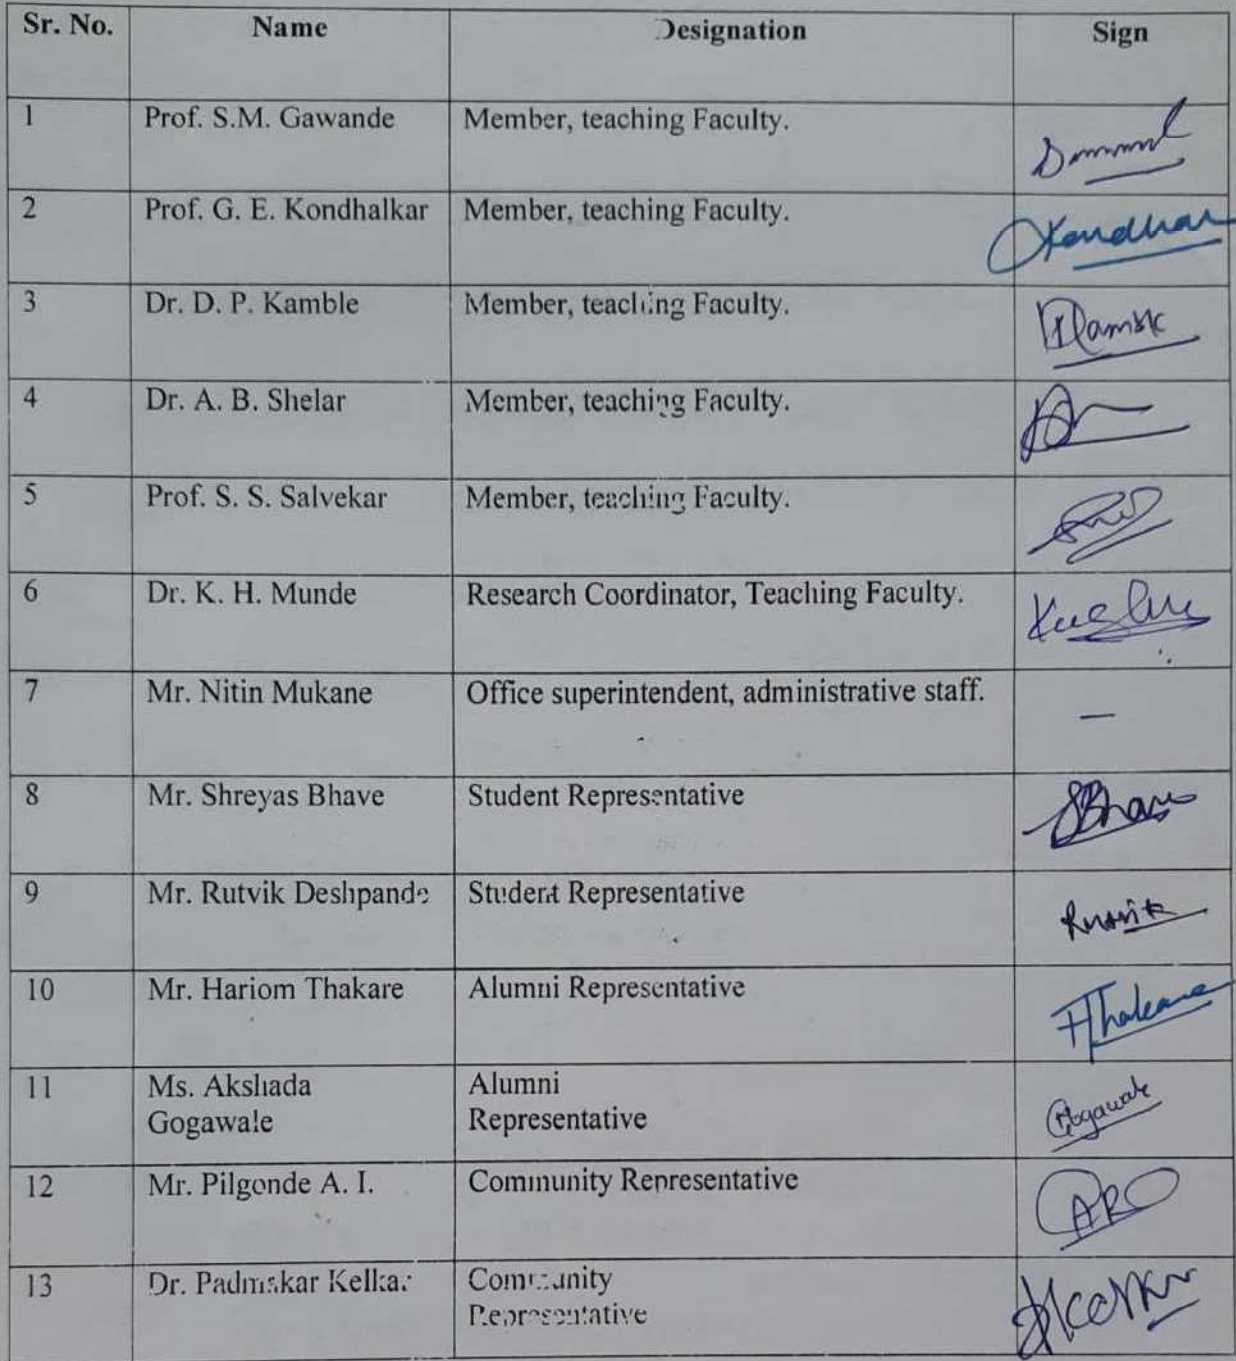 Sr. No. Name Designation Sign
1 Prof. S.M. Gawande Member, teaching Faculty.
2 Prof. G. E. Kondhalkar Member, teaching Faculty.
3 Dr. D. P. Kamble Member, teaching Faculty.
4 Dr. A. B. Shelar Member, teaching Faculty.
5 Prof. S. S. Salvekar Member, teaching Faculty.
6 Dr. K. H. Munde Research Coordinator, Teaching Faculty.
7 Mr. Nitin Mukane Office superintendent, administrative staff. —
8 Mr. Shreyas Bhave Student Representative
9 Mr. Rutvik Deshpande Student Representative
10 Mr. Hariom Thakare Alumni Representative HThakare
11 Ms. Akshada Alumni
Gogawale Representative
12 Mr. Pilgonde A. I. Community Representative
13 Dr. Padmakar Kelkar Community
Representative